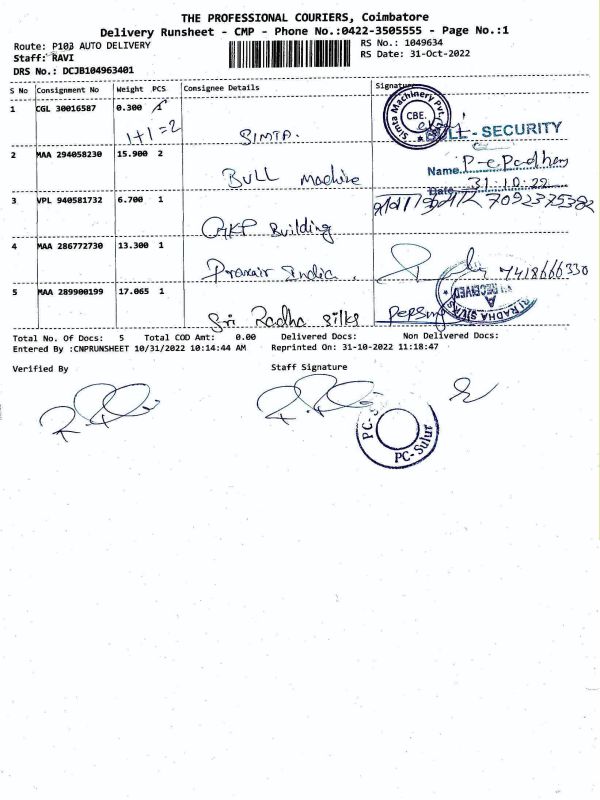 THE PROFESSIONAL COURIERS, Coimbatore
Delivery Runsheet - CMP - Phone No.:0422-3505555 - Page No.:1
Route: P103 AUTO DELIVERY RS No.: 1049634
Staff: RAVI RS Date: 31-Oct-2022
DRS No.: DCJB104963401
S No Consignment No Weight PCS Consignee Details Signature
1 CGL 30016587 0.300
1+1=2 SIMTA.
Simta Machinery Pvt.
CBE.
- SECURITY
2 MAA 294058230 15.900 2 Bull Machine
Name
Date 31.10.22
3 VPL 940581732 6.700 1 GKP Building
7092375382
4 MAA 286772730 13.300 1 Praxair India.
7418666330
5 MAA 289900199 17.065 1 Sri Radha silks
RECEIVED
RADHA SILKS
Total No. Of Docs: 5 Total COD Amt: 0.00 Delivered Docs: Non Delivered Docs:
Entered By :CNPRUNSHEET 10/31/2022 10:14:44 AM Reprinted On: 31-10-2022 11:18:47
Verified By Staff Signature
PC-Sulur